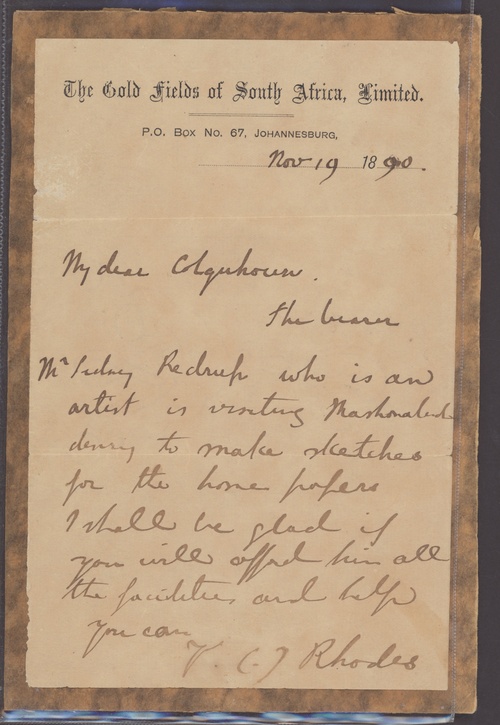 The Gold Fields of South Africa, Limited.
P.O. Box No. 67, Johannesburg,
Nov 19 1890.
My dear Colquhoun.
The bearer
Mr Sidney Redrup who is an
artist is visiting Mashonaland
to make sketches
for the home papers
I shall be glad if
you will afford him all
the facilities and help
you can
C J Rhodes